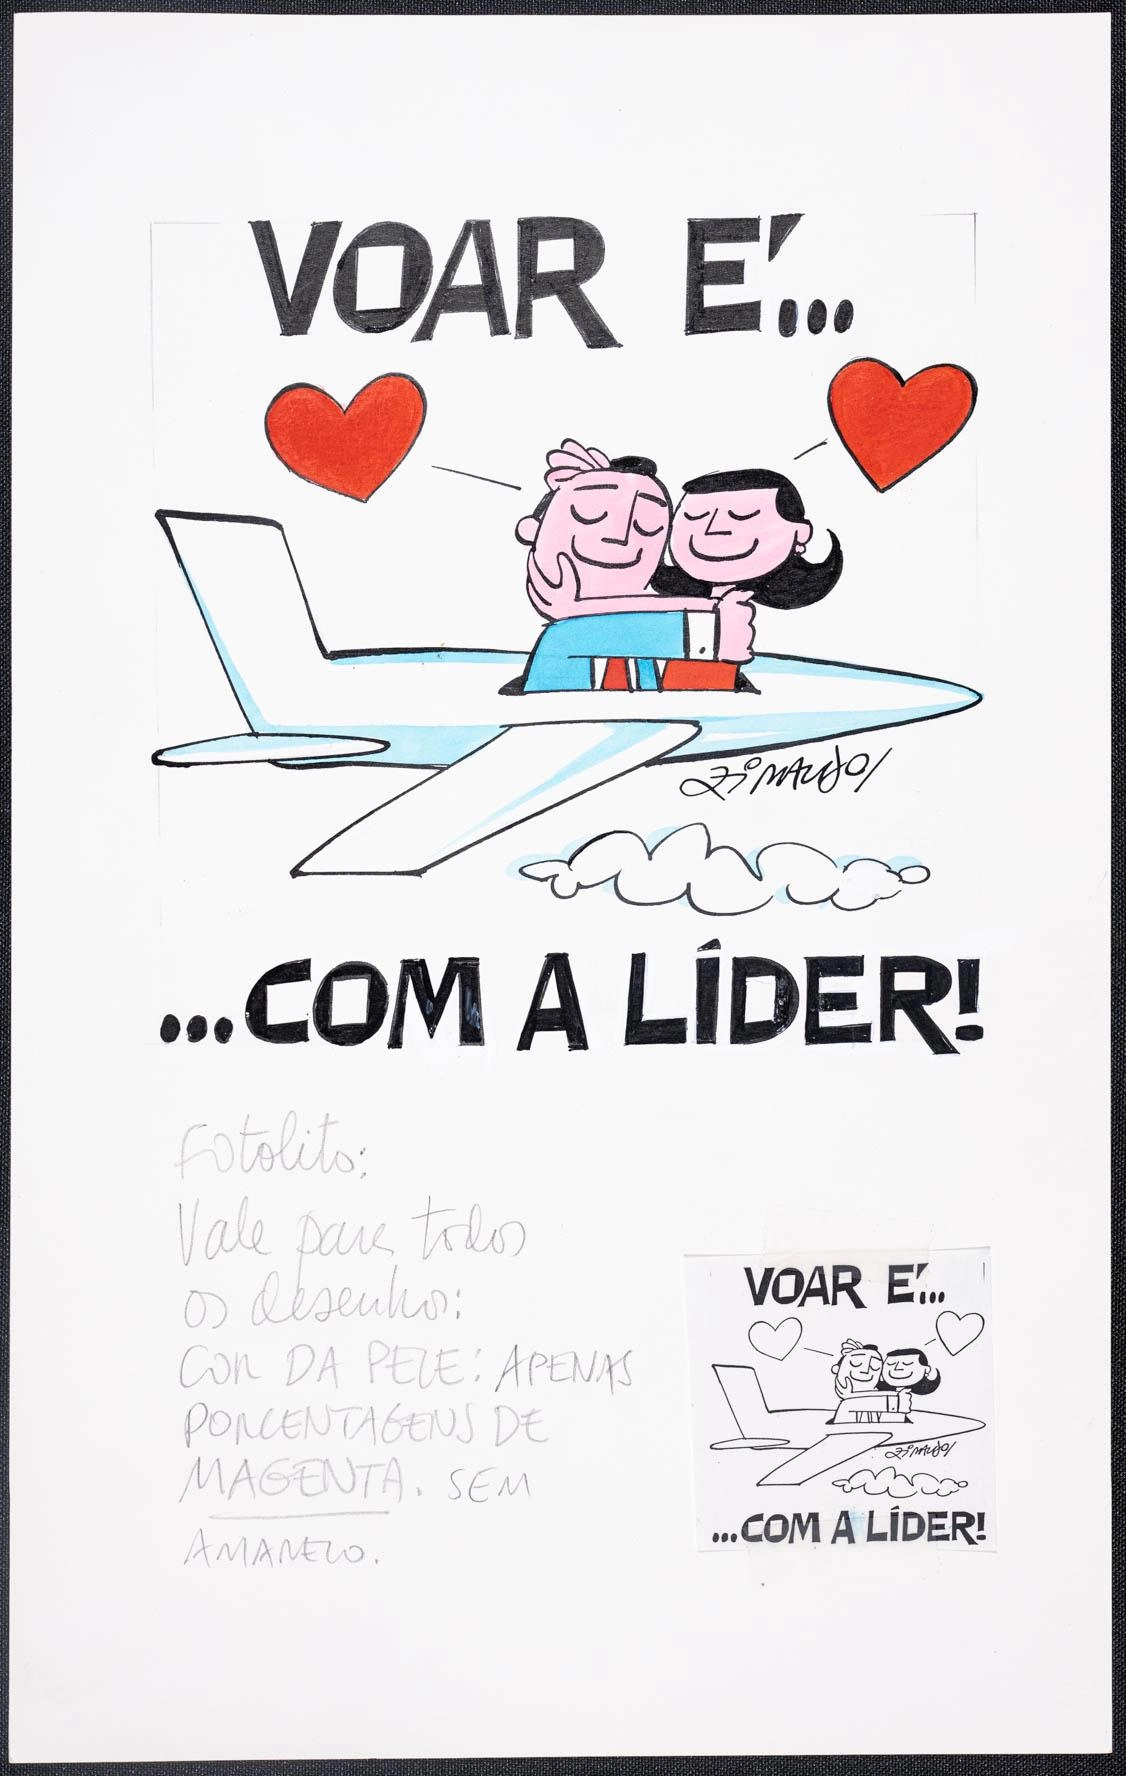 VOAR É...
ZIRALDO/
...COM A LÍDER!
Fotolito:
Vale para todos
os desenhos:
COR DA PELE: APENAS
PORCENTAGENS DE
MAGENTA. SEM
AMARELO.
VOAR É...
ZIRALDO/
...COM A LÍDER!